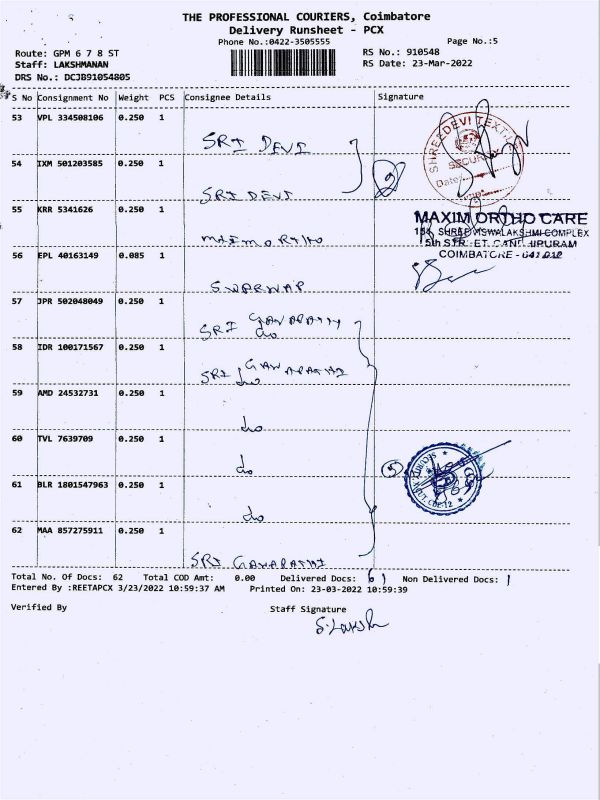 THE PROFESSIONAL COURIERS, Coimbatore
Delivery Runsheet - PCX
Phone No.:0422-3505555
Page No.:5
Route: GPM 6 7 8 ST
RS No.: 910548
Staff: LAKSHMANAN
RS Date: 23-Mar-2022
DRS No.: DCJB91054805
S No Consignment No Weight PCS Consignee Details Signature
53 VPL 334508106 0.250 1
SRI DEVI
SHREEDEVI TEXTILE
SECURITY
Date:
54 IXM 501203585 0.250 1
SRI DEVI
55 KRR 5341626 0.250 1
MAXIM ORTHO CARE
SHREE VISWALAKSHMI COMPLEX
5th STREET, GANDHIPURAM
COIMBATORE - 641 012
56 EPL 40163149 0.085 1
SWARWAP
57 JPR 502048049 0.250 1
SRI GANAPATHY
do
58 IDR 100171567 0.250 1
SRI GANAPATHI
do
59 AMD 24532731 0.250 1
do
60 TVL 7639709 0.250 1
do
5
61 BLR 1801547963 0.250 1
do
62 MAA 857275911 0.250 1
SRI GANAPATHI
Total No. Of Docs: 62 Total COD Amt: 0.00 Delivered Docs: 61 Non Delivered Docs: 1
Entered By :REETAPCX 3/23/2022 10:59:37 AM Printed On: 23-03-2022 10:59:39
Verified By Staff Signature
S. Laksh